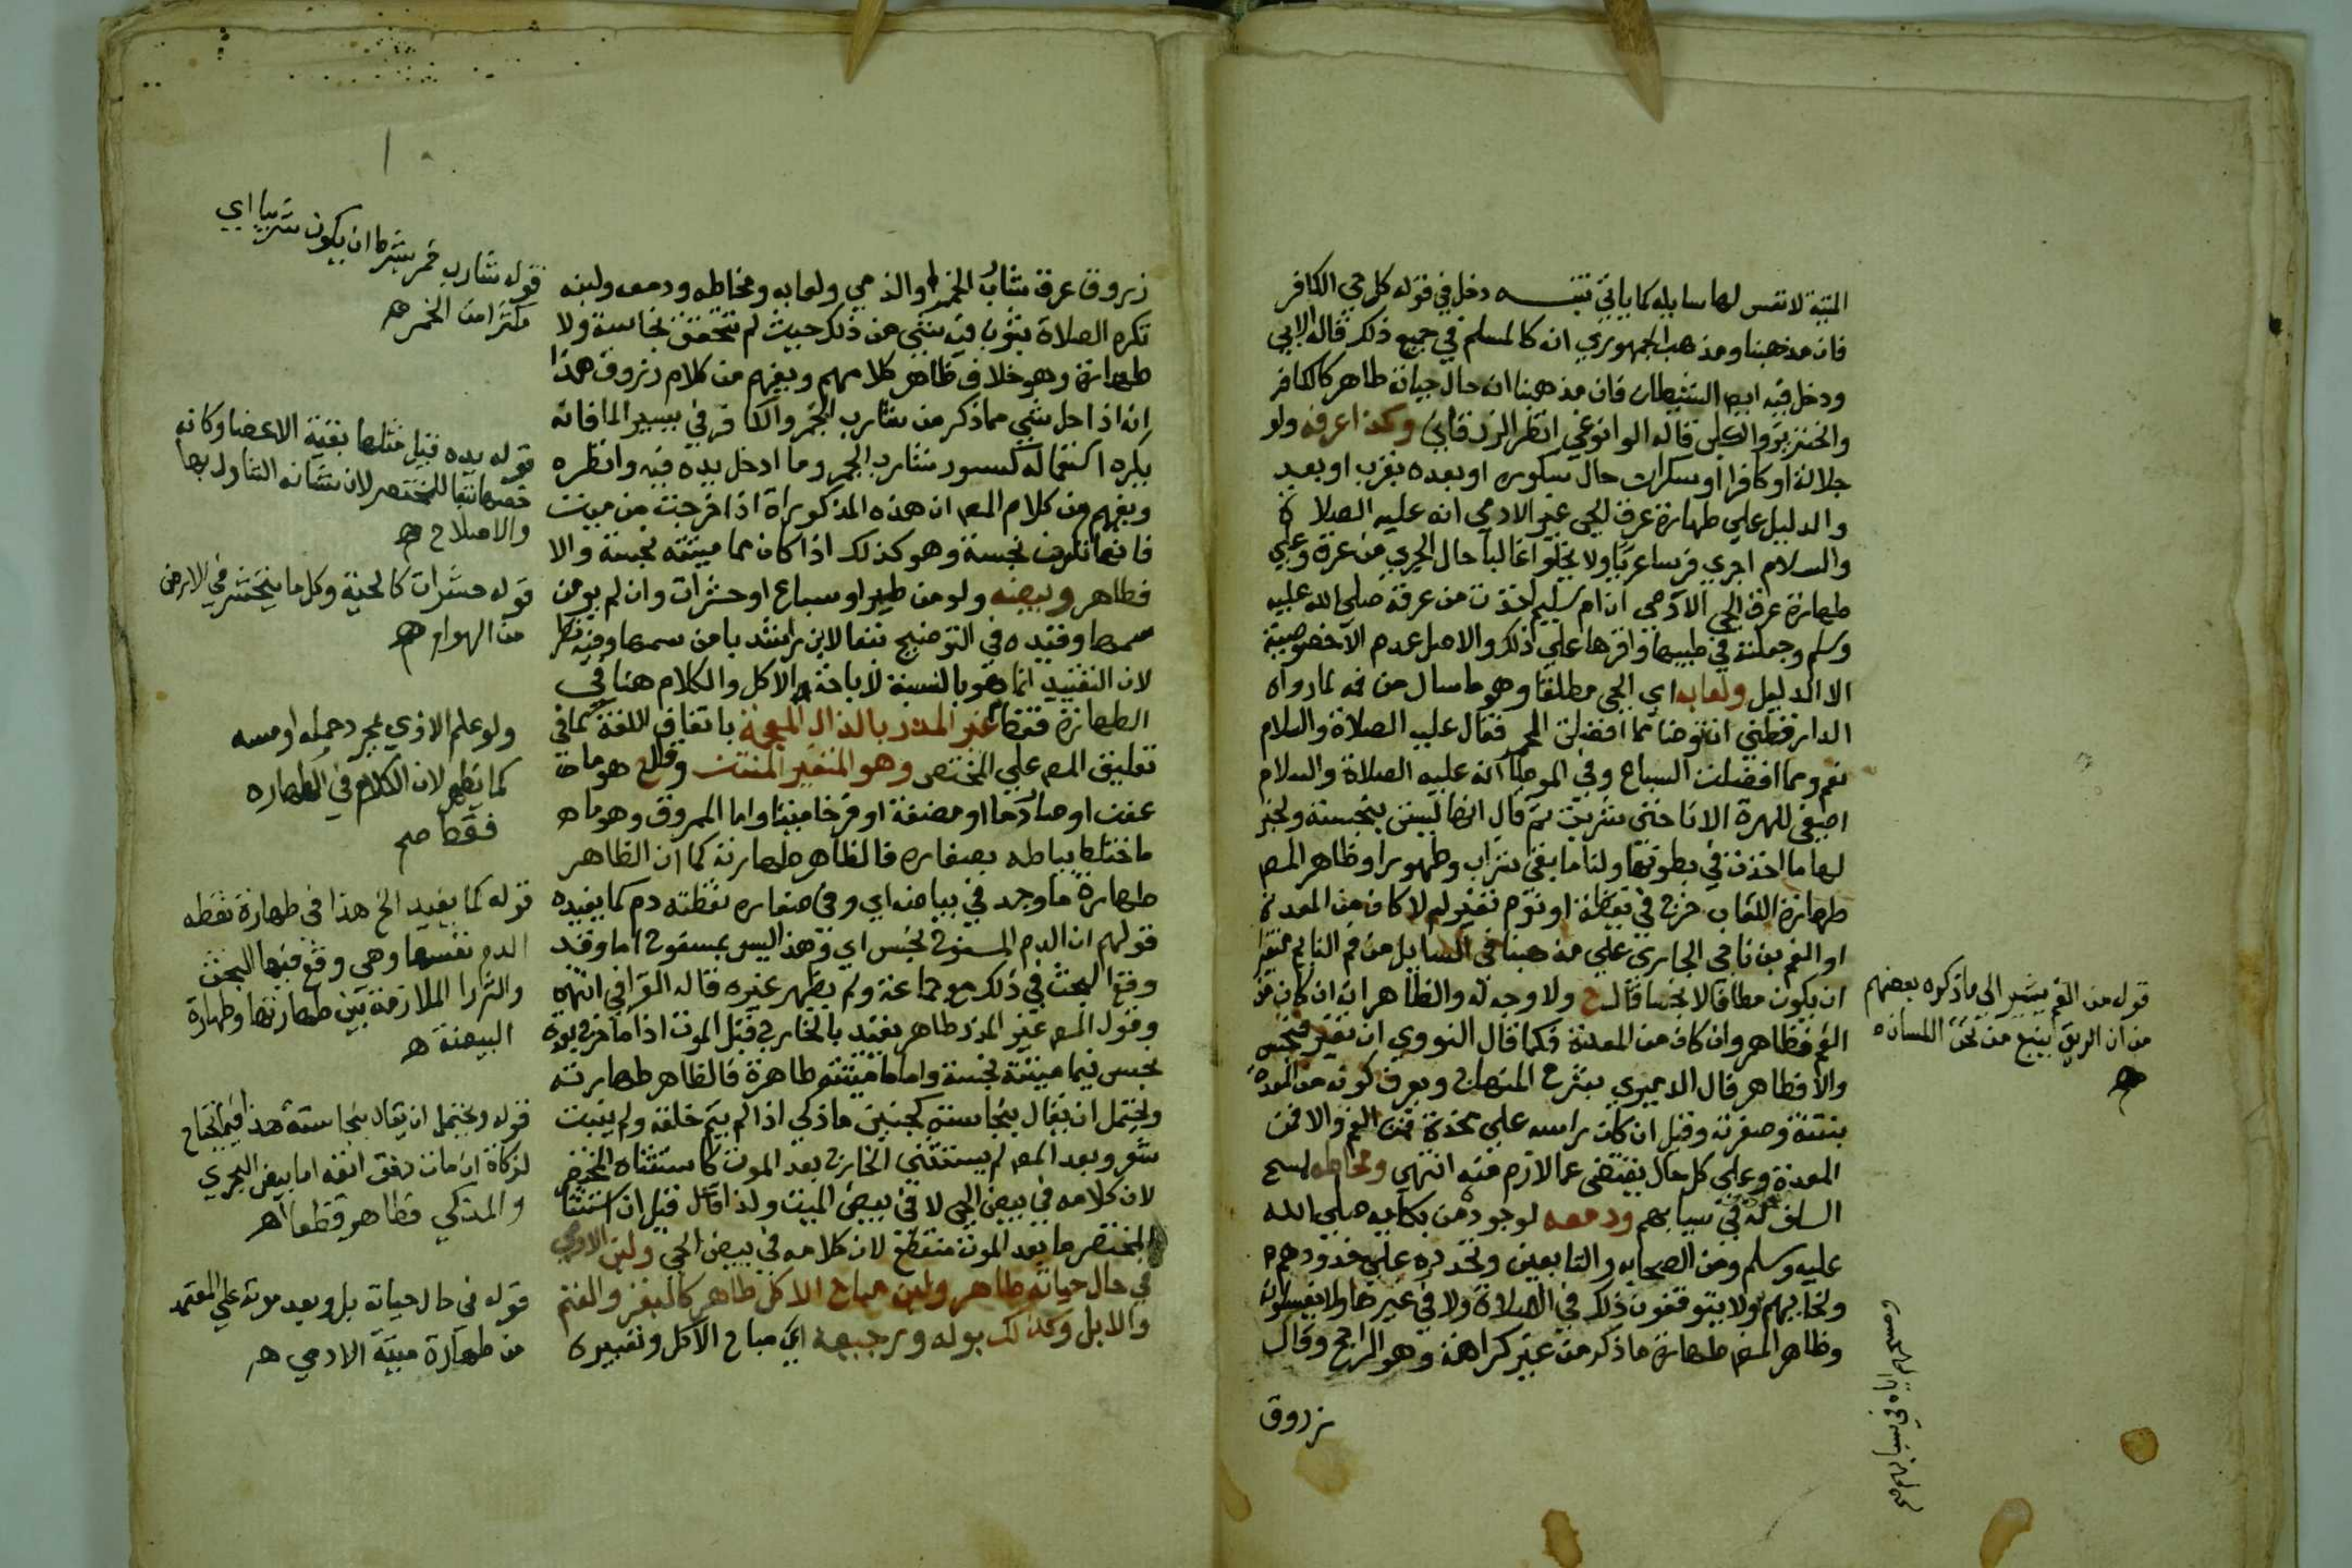 الميتة لا نفس لها سايله كما ياتي تنبيـــه دخل في قوله كل حي الكافر
فان مذهبنا ومذهب الجمهوري انه كالمسلم في جميع ذلك قاله الابي
ودخل فيه ايضا الشيطان فان مذهبنا ان حال حياته طاهر كالكافر
والخنزير والكلب قاله الوانوغي انظر الزرقاني وكذا عرقه ولو
جلالة او كافرا او سكران حال سكره او بعده بقرب او بعد
والدليل علي طهارة عرق الحي غير الادمي انه عليه الصلاة
والسلام اجري فرسا عريا ولا يخلوا غالبا حال الجري من عرق وعلي
طهارة عرق الحي الادمي ان ام سليم اخذت من عرقه صلي الله عليه
وسلم وجعلته في طيبها واقرها علي ذلك والاصل عدم الخصوصية
الا الدليل ولعابه اي الحي مطلقا وهو ما سال من فمه لما رواه
الدارقطني انتوضا مما افضلت الحمر فقال عليه الصلاة والسلام
نعم ومما افضلت السباع وفي الموطا انه عليه الصلاة والسلام
اصغي للهرة الانا حتي شربت ثم قال انها ليست بنجسة ولخبر
لها ما اخذت في بطونها ولنا ما بقي شراب وطهورا وظاهر المص
طهارة اللعاب خرج في يقظة او نوم تغير ام لا كان من المعدة
او الفم بن ناجي الجاري علي مذهبنا في السايل من فم النايم متغيرا
ان يكون مضافا لا نجسا قال ح ولا وجه له والظاهر انه ان كان من
الفم فطاهر وان كان من المعدة فكما قال النووي ان تغير فنجس
والا فطاهر قال الدميري بشرح المنهاج ويعرف كونه من المعدة
بنتنه وصفرته وقيل ان كان راسه علي مخدة فمن الفم والا فمن
المعدة وعلي كل حال يعفي عما لازم منه انتهي ومخاطه لمسح
السلف له في ثيابهم ودمعه لوجود من بكايه صلي الله
عليه وسلم ومن الصحابه والتابعين وتحدره علي خدودهم
ولحاهم ولا يتوقفون ذلك في الصلاة ولا في غيرها ولا يغسلونه
وظاهر المص طهارة ما ذكر من غير كراهة وهو الراجح وقال
زروق
قوله من الفم يشير الي ما ذكره بعضهم
من ان الريق ينبع من تحت اللسان ه
زروق عرق شارب الخمر والذمي ولعابه ومخاطه ودمعه ولبنه
تكره الصلاة بثوب فيه شي من ذلك حيث لم تتحقق نجاسة ولا
طهارة وهو خلاف ظاهر كلامهم ويفهم من كلام زروق هذا
انه اذا حل شي مما ذكر من شارب الخمر والكافر في يسير الما فانه
يكره استعماله كسور شارب الخمر وما ادخل يده فيه وانظره
ويفهم من كلام المص ان هذه المذكوراة اذا خرجت من ميت
فانها تكون نجسة وهو كذلك اذا كان مما ميتته نجسة والا
فطاهر وبيضه ولو من طير او سباع او حشرات وان لم يومن
سمها وقيده في التوضيح تبعا لابن راشد بامن سمها وفيه نظر
لان التقييد انما هو بالنسبة لاباحة الاكل والكلام هنا في
الطهارة فقط غير المذر بالذال المعجمة باتفاق اللغة كما في
تعليق المص علي المختصر وهو المتغير المنتن وقال ح هو ما
عفن او صار دما او مضغة او فرخا ميتا واما الممروق وهو ما
اختلط بياضه بصفاره فالظاهر طهارته كما ان الظاهر
طهارة ما وجد في بياضه اي وفي صفاره نقطة دم كما يفيده
قولهم ان الدم المسفوح نجس اي وهذا ليس بمسفوح اما وقد
وقع البحث في ذلك مع جماعة ولم يظهر غيره قاله القرافي انتهي
وقول المص غير المذر طاهر يقيد بالخارج قبل الموت اذ اما خرج بعده
نجس فيما ميتته نجسة واما ما ميتته طاهرة فالظاهر طهارته
ويحتمل ان يقال بنجاسته كجنين ما ذكي اذا لم يتم خلقه ولم ينبت
شعره وبعد المص لم يستثني الخارج بعد الموت كاستثناه المختصر
لان كلامه في بيض الحي لا في بيض الميت ولذا قال قيل ان استثنا
المختصر ما بعد الموت منقطع لان كلامه في بيض الحي ولبن الادمي
في حال حياته طاهر ولبن مباح الاكل طاهر كالبقر والغنم
والابل وكذلك بوله ورجيعه اي مباح الاكل وتعبيره
قوله شارب خمر بشرط ان يكون شريبا اي
مكثرا من الخمر ه
قوله يده قيل مثلها بقية الاعضا وكانه
خصها تبعا للمختصر لان شانه التناول بها
والاصلاح ه
قوله حشرات كالحية وكل ما ينحشر في الارض
من الهوام ه
ولو علم الاذي بمجرد حمله او مسه
كما يظهر لان الكلام في الطهاره
فقط صح
قوله كما يفيد الخ هذا في طهارة نقطه
الدم نفسها وهي وقع فيها البحث
البيضة ه
قوله ويحتمل ان يقال بنجاسته هذا فيما يحتاج
لزكاة ان مات حتف انفه اما بيض البحري
والمذكي فطاهر قطعا اهـ
قوله في حال حياته بل وبعد موته علي المعتمد
من طهارة ميتة الادمي ه